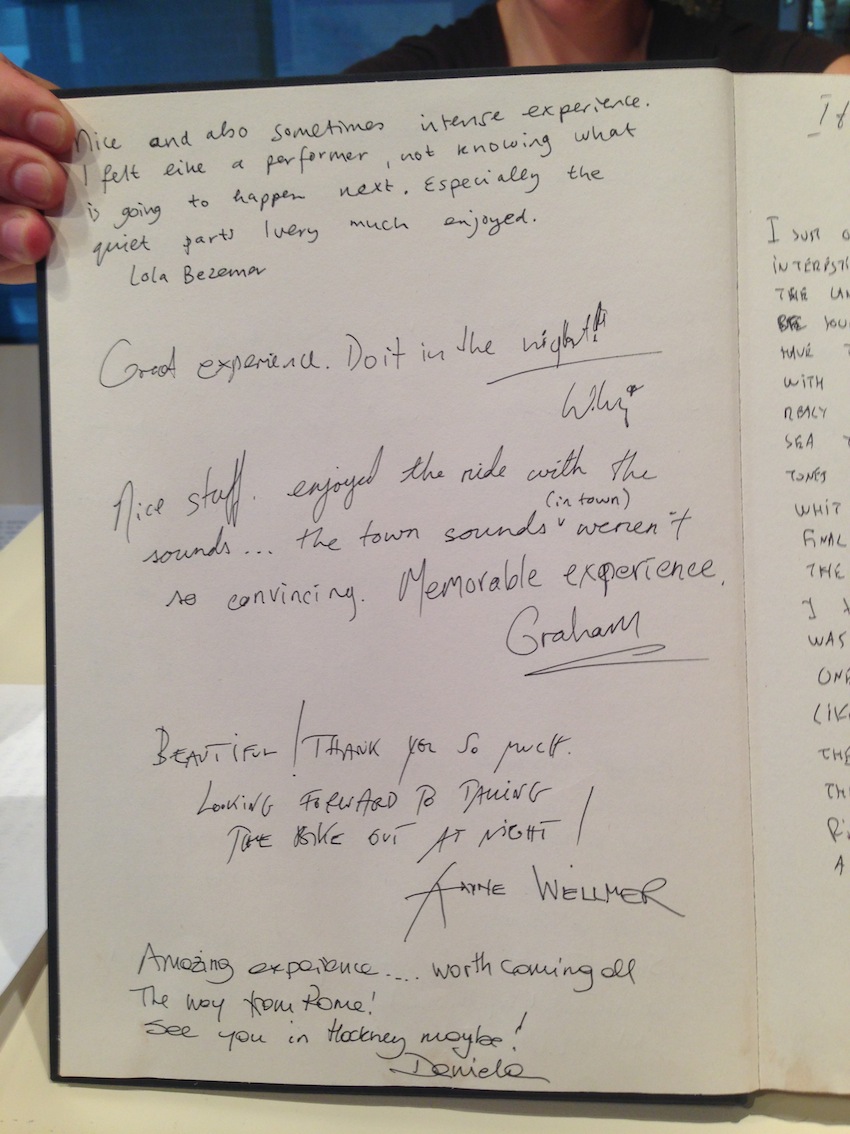 Nice and also sometimes intense experience.
I felt like a performer, not knowing what
is going to happen next. Especially the
quiet parts I very much enjoyed.
Lola Bezemer
Great experience. Do it in the night!!
Nice stuff. enjoyed the ride with the
sounds... the town sounds (in town) weren't
so convincing. Memorable experience.
Graham
BEAUTIFUL! THANK YOU SO MUCH.
LOOKING FORWARD TO TAKING
THE BIKE OUT AT NIGHT!
ANNE WELLMER
Amazing experience.... worth coming all
The way from Rome!
See you in Hackney maybe!
Daniela
I JUST
INTERESTI
THE
HAVE
WITH
SEA
TONES
WHIT
FINAL
THE
I
WAS
ONE
LIK
THE
TH
A